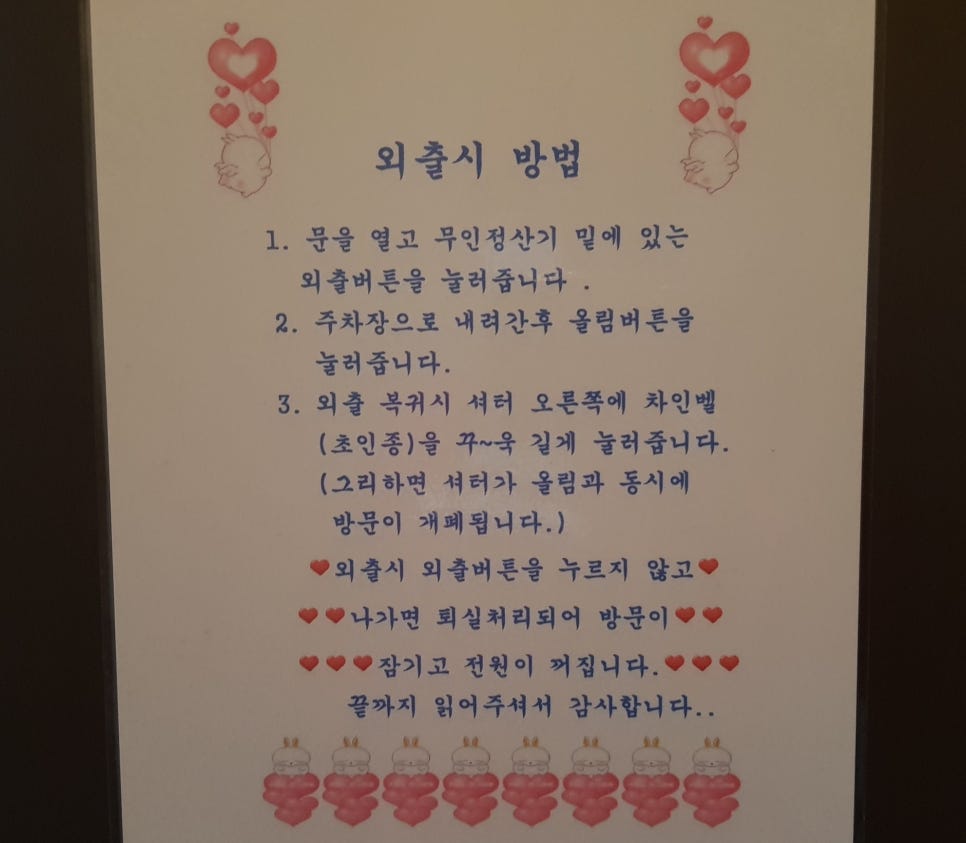 외출시 방법
1. 문을 열고 무인정산기 밑에 있는
외출버튼을 눌러줍니다 .
2. 주차장으로 내려간후 올림버튼을
눌러줍니다.
3. 외출 복귀시 셔터 오른쪽에 차인벨
(초인종)을 꾸~욱 길게 눌러줍니다.
(그리하면 셔터가 올림과 동시에
방문이 개폐됩니다.)
❤외출시 외출버튼을 누르지 않고❤
❤❤나가면 퇴실처리되어 방문이❤❤
❤❤❤잠기고 전원이 꺼집니다.❤❤❤
끝까지 읽어주셔서 감사합니다..